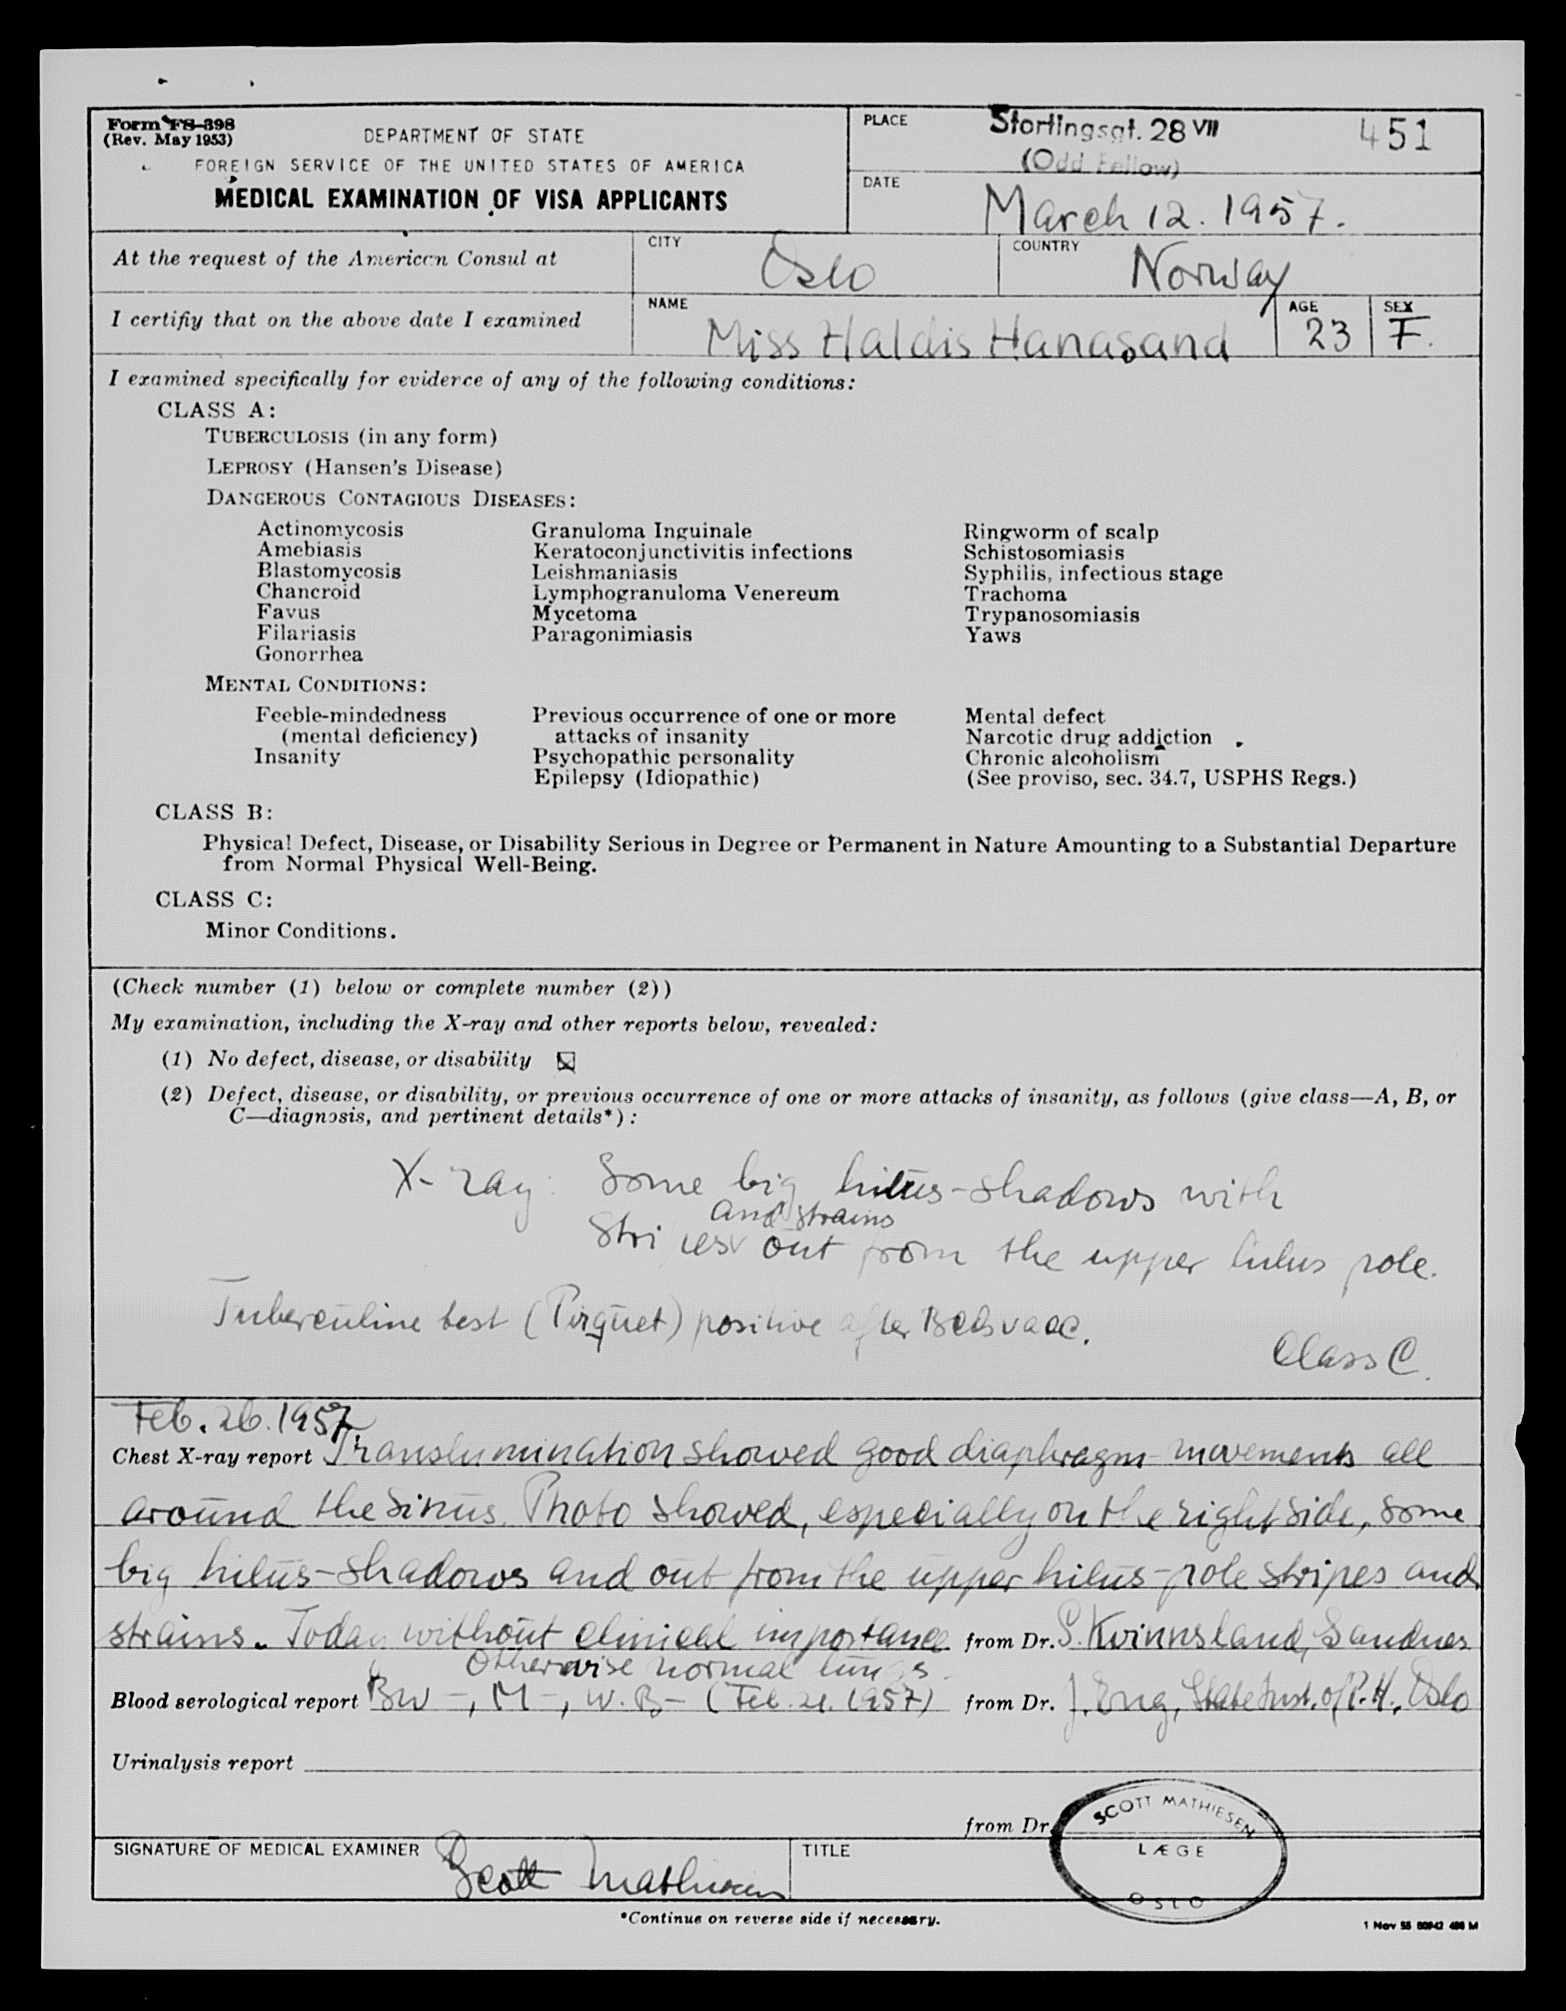 Form FS-398
(Rev. May 1953)
DEPARTMENT OF STATE
FOREIGN SERVICE OF THE UNITED STATES OF AMERICA
MEDICAL EXAMINATION OF VISA APPLICANTS
PLACE
Stortingsgt. 28 VII
(Odd Fellow)
451
DATE
March 12. 1957.
At the request of the American Consul at
CITY
Oslo
COUNTRY
Norway
I certifiy that on the above date I examined
NAME
Miss Haldis Hanasand
AGE
23
SEX
F.
I examined specifically for evidence of any of the following conditions:
CLASS A:
TUBERCULOSIS (in any form)
LEPROSY (Hansen's Disease)
DANGEROUS CONTAGIOUS DISEASES:
Actinomycosis Granuloma Inguinale Ringworm of scalp
Amebiasis Keratoconjunctivitis infections Schistosomiasis
Blastomycosis Leishmaniasis Syphilis, infectious stage
Chancroid Lymphogranuloma Venereum Trachoma
Favus Mycetoma Trypanosomiasis
Filariasis Paragonimiasis Yaws
Gonorrhea
MENTAL CONDITIONS:
Feeble-mindedness Previous occurrence of one or more Mental defect
(mental deficiency) attacks of insanity Narcotic drug addiction
Insanity Psychopathic personality Chronic alcoholism
Epilepsy (Idiopathic) (See proviso, sec. 34.7, USPHS Regs.)
CLASS B:
Physical Defect, Disease, or Disability Serious in Degree or Permanent in Nature Amounting to a Substantial Departure
from Normal Physical Well-Being.
CLASS C:
Minor Conditions.
(Check number (1) below or complete number (2))
My examination, including the X-ray and other reports below, revealed:
(1) No defect, disease, or disability ☒
(2) Defect, disease, or disability, or previous occurrence of one or more attacks of insanity, as follows (give class—A, B, or
C—diagnosis, and pertinent details*):
X-ray: Some big hilus-shadows with
and strains
out from the upper hilus pole.
Tuberculine test (Pirquet) positive after
Class C.
Feb. 26. 1957
Chest X-ray report Translumination showed good diaphragm-movements all
around the sinus. Photo showed, especially on the right side, some
big hilus-shadows and out from the upper hilus-pole stripes and
strains. Today without clinical importance from Dr. S. Kvinnsland, Sandnes
Otherwise normal lungs.
Blood serological report BW -, M -, W.B- (Feb. 21. 1957) from Dr. J. Eng, State Inst. of P.H., Oslo
Urinalysis report
from Dr.
SCOTT MATHIESEN
LÆGE
OSLO
SIGNATURE OF MEDICAL EXAMINER
Scott Mathiesen
TITLE
*Continue on reverse side if necessary.
1 Nov 55